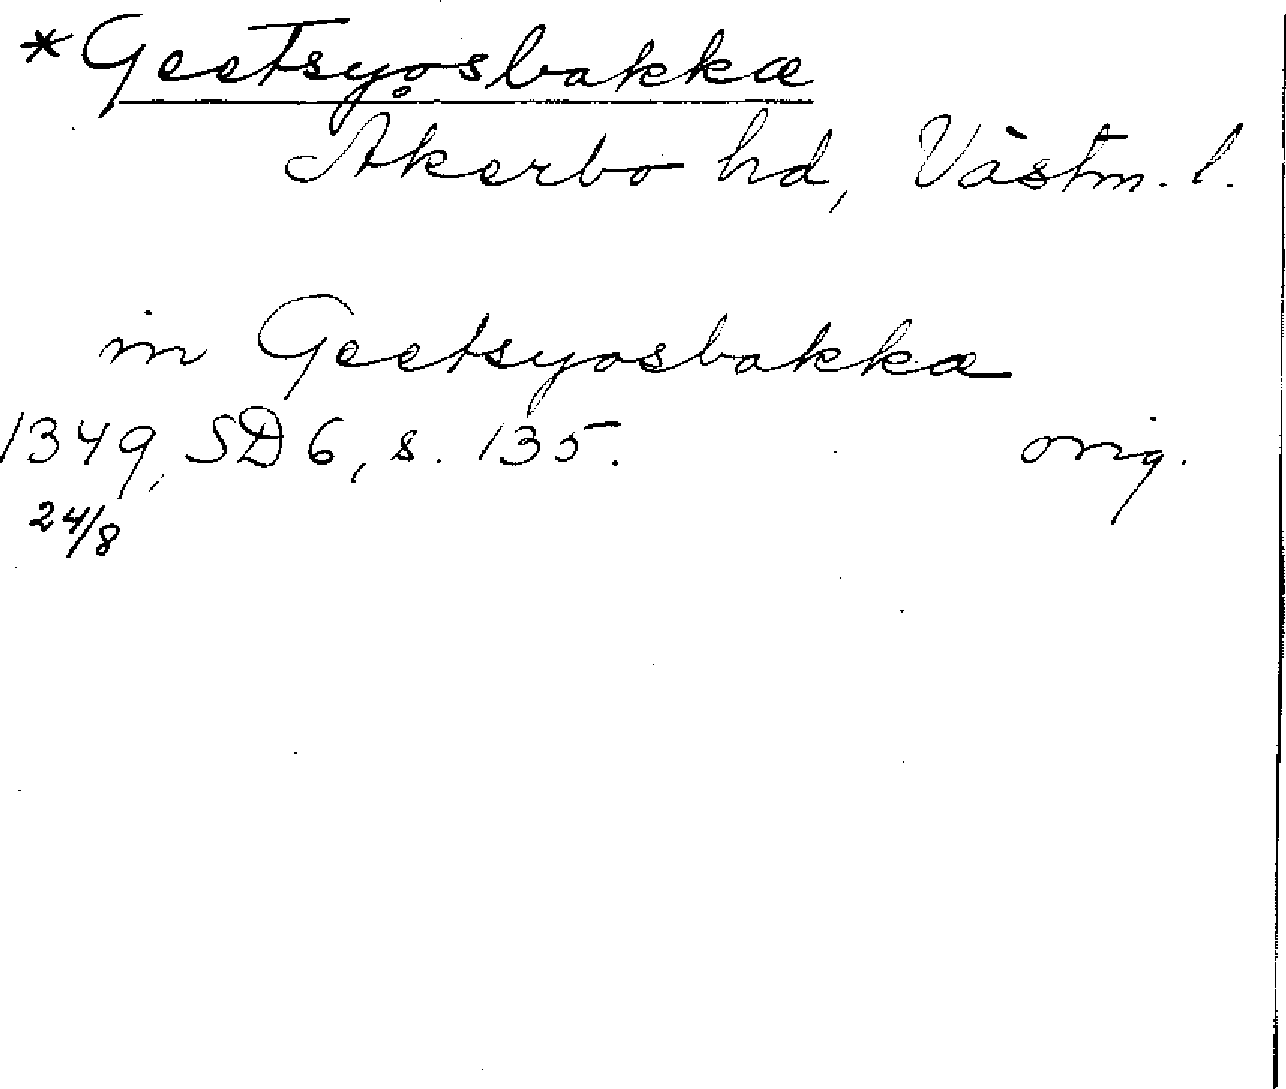 *Geetsyosbakkæ
Åkerbo hd, Västm. l.
in Geetsyosbakkæ
1349, SD 6, s. 135. orig.
24/8